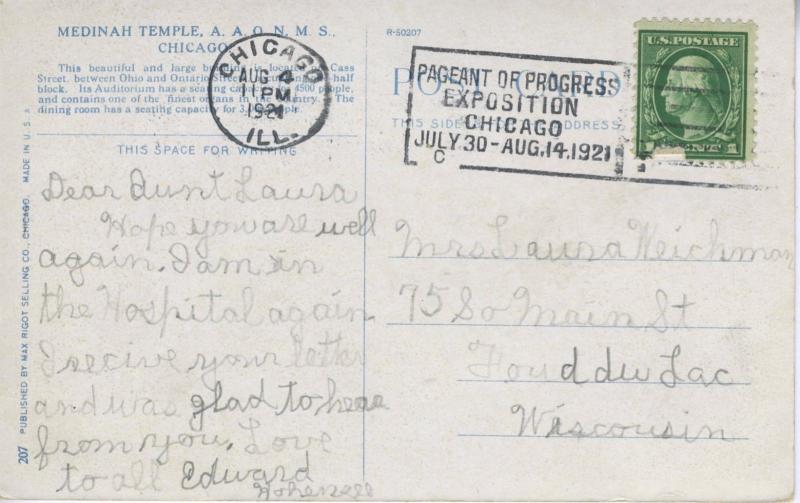 MEDINAH TEMPLE, A. A. O. N. M. S.,
CHICAGO
This beautiful and large building is located on Cass
Street, between Ohio and Ontario Streets, half
block. Its Auditorium has a seating capacity of 4500 people,
and contains one of the finest organs in the Country. The
dining room has a seating capacity for 3 people.
THIS SPACE FOR WRITING
Dear Aunt Laura
Hope you are well
again. I am in
the Hospital again
I recive your letter
and was glad to hear
from you. Love
to all Edward
R-50207
POST CARD
THIS SIDE ADDRESS
CHICAGO
AUG 4
11 PM
1921
ILL.
PAGEANT OF PROGRESS
EXPOSITION
CHICAGO
JULY.30-AUG.14.1921
C
U.S. POSTAGE
1 CENT 1
Mrs Laura Weichman
75 So Main St
Foud du Lac
Wisconsin
207 PUBLISHED BY MAX RIGOT SELLING CO., CHICAGO. MADE IN U. S. A.